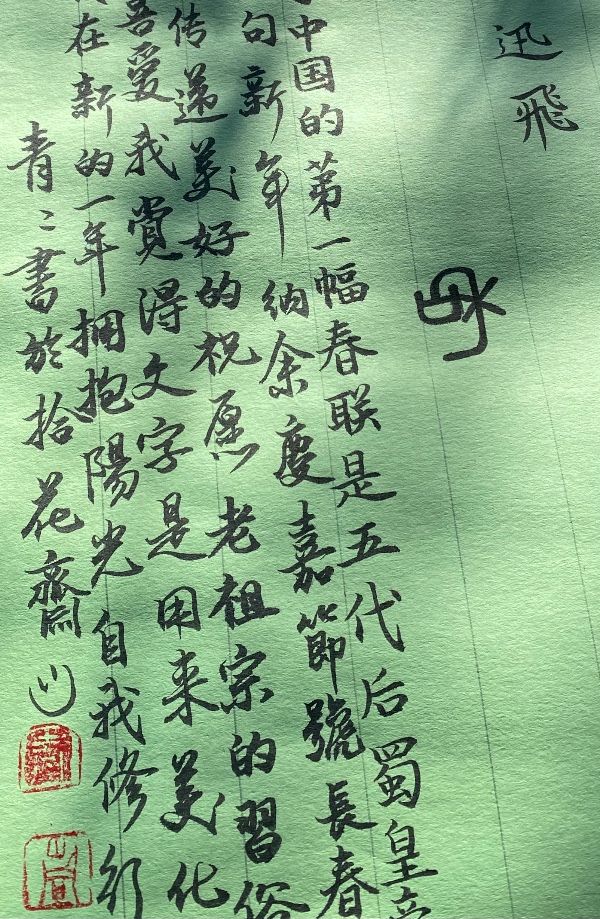 迅飛
中国的第一幅春联是五代后蜀皇帝
句新年纳余慶嘉節號長春
传递美好的祝愿老祖宗的習俗
吾爱我赏得文字是用来美化
在新的一年拥抱陽光自我修行
青〻書於拾花齋